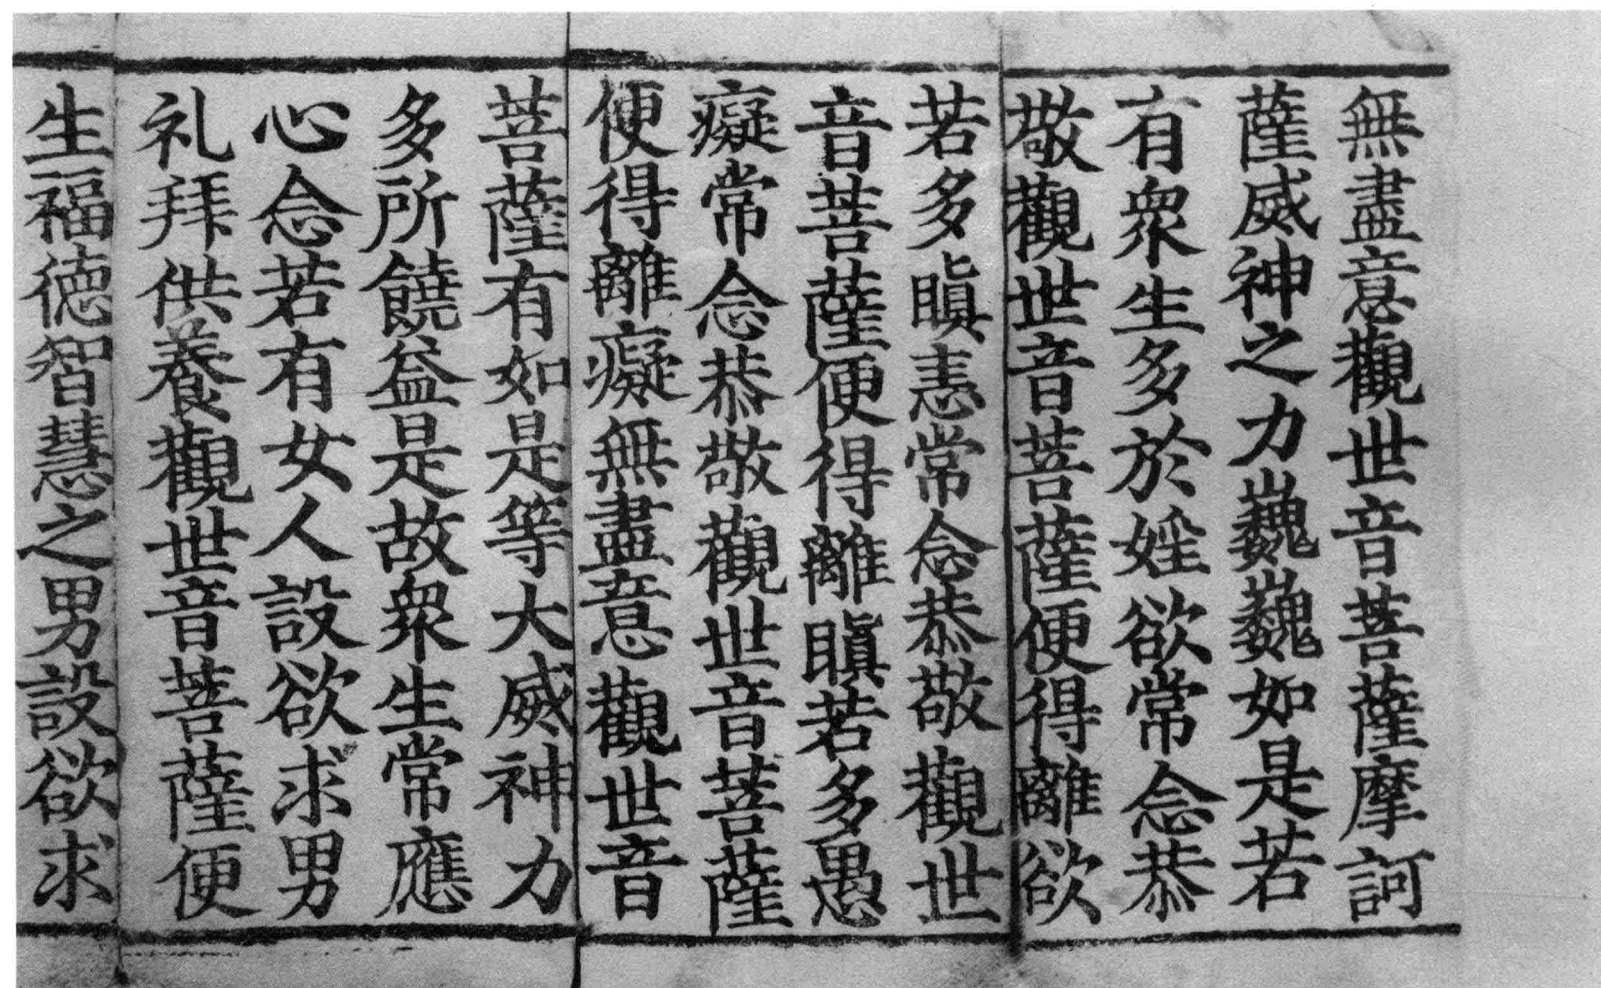 無盡意觀世音菩薩摩訶
薩威神之力巍巍如是若
有衆生多於婬欲常念恭
敬觀世音菩薩便得離欲
若多瞋恚常念恭敬觀世
音菩薩便得離瞋若多愚
癡常念恭敬觀世音菩薩
便得離癡無盡意觀世音
菩薩有如是等大威神力
多所饒益是故衆生常應
心念若有女人設欲求男
礼拜供養觀世音菩薩便
生福德智慧之男設欲求